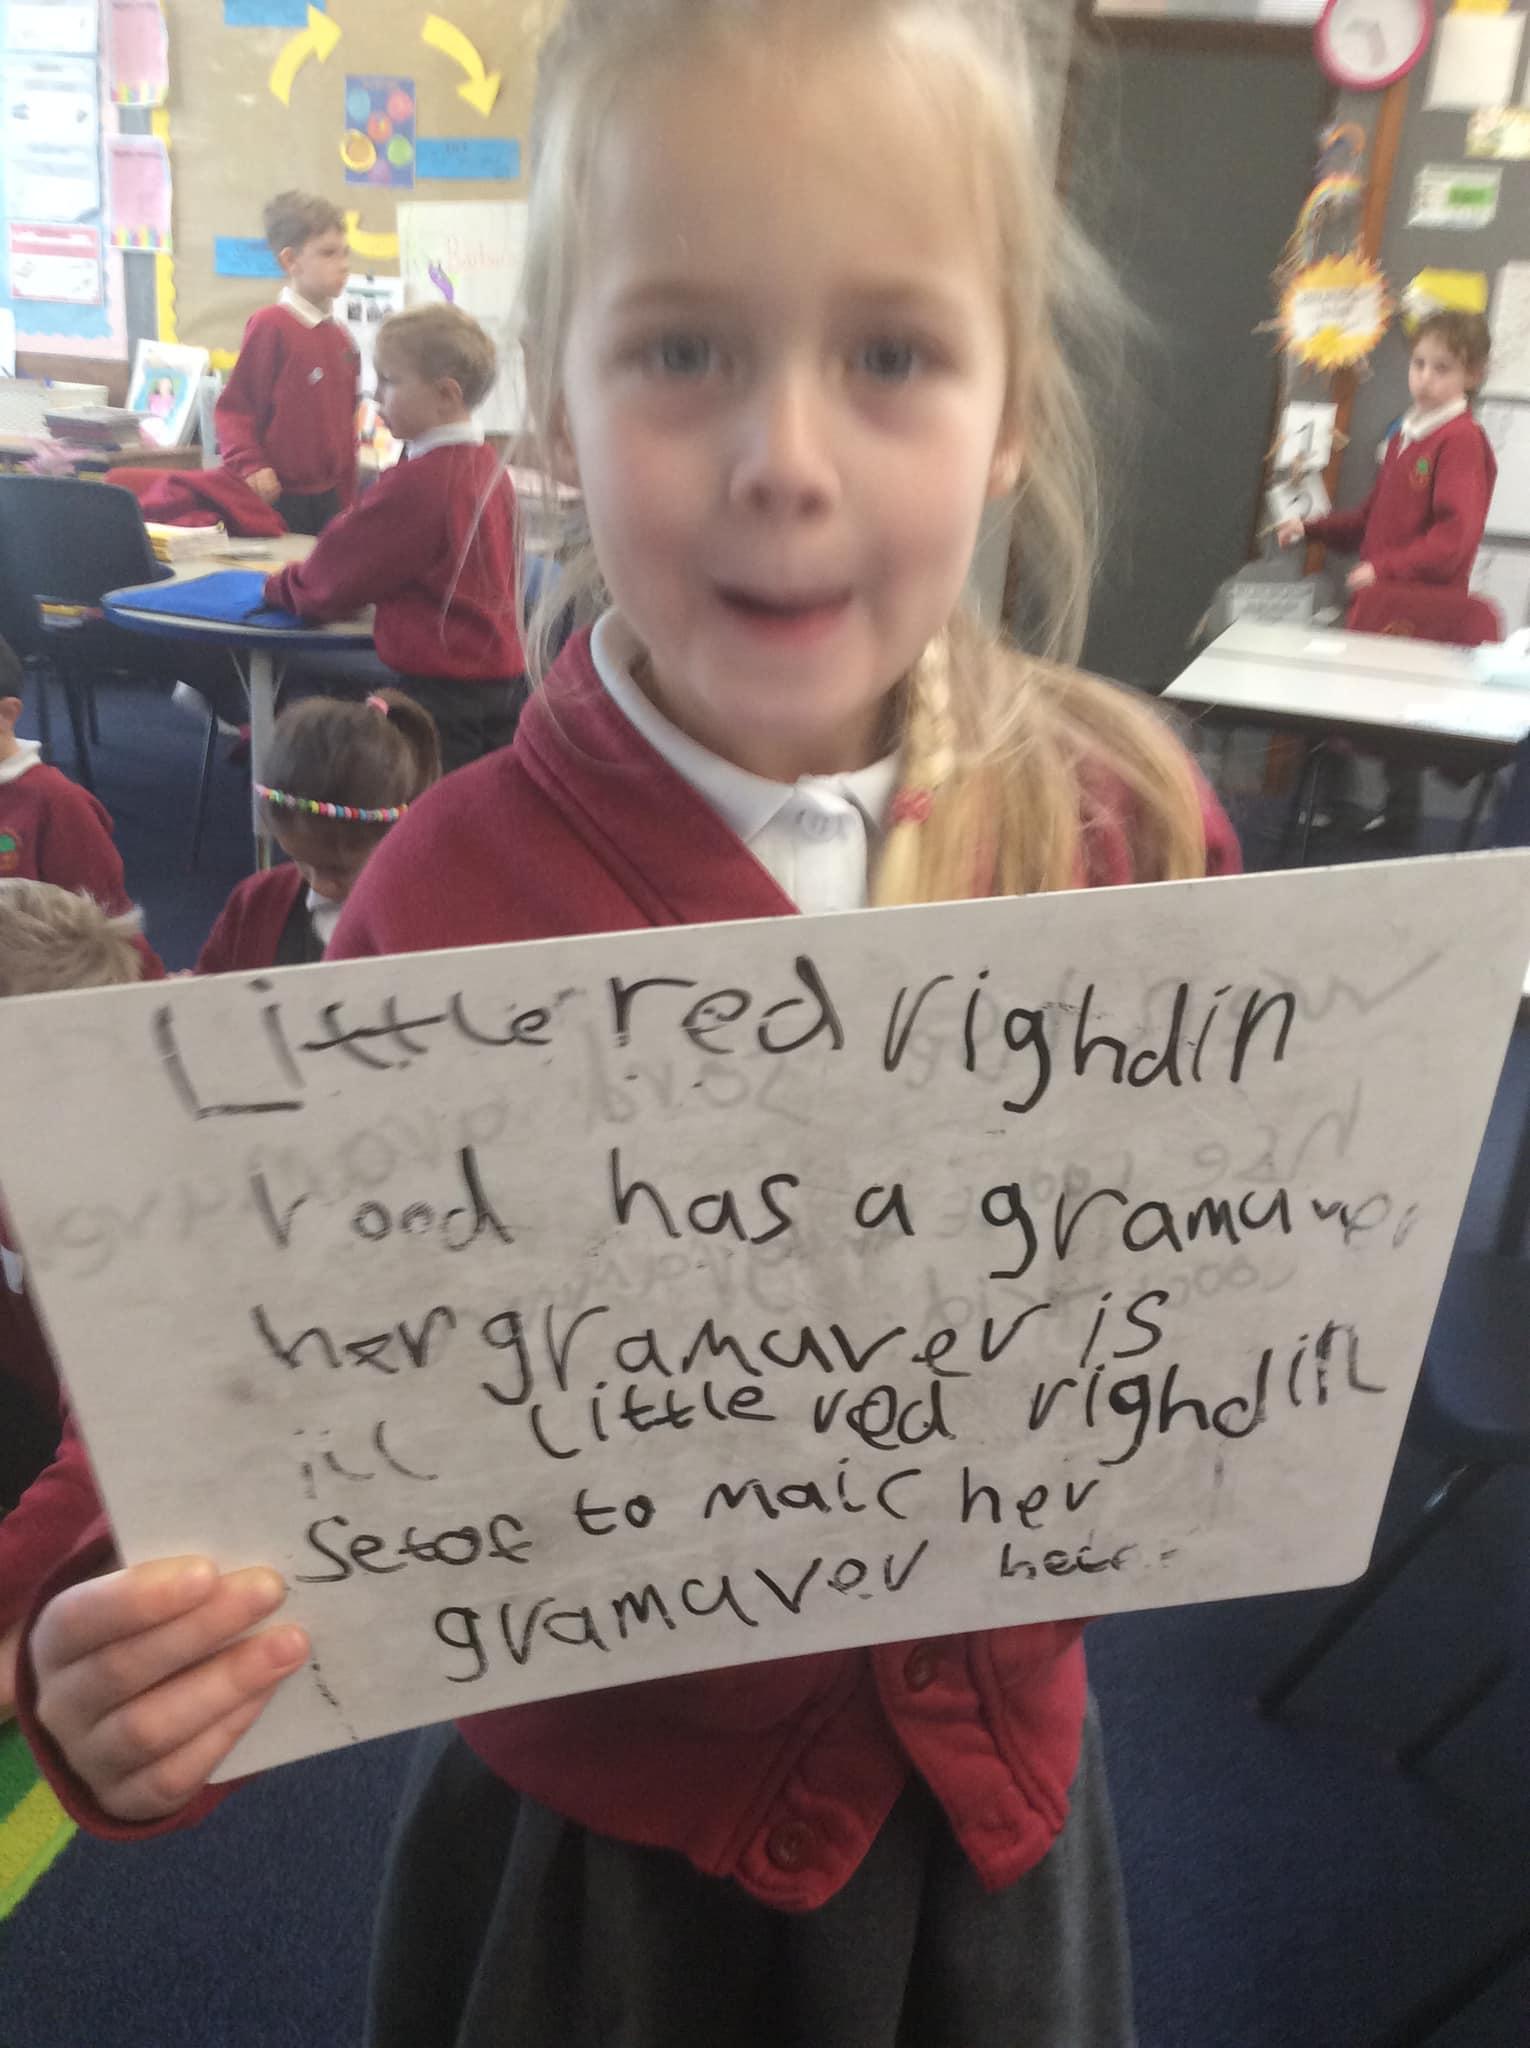 Little red righdin
rood has a gramaver
her gramaver is
ill little red righdin
Setof to maic her
gramaver